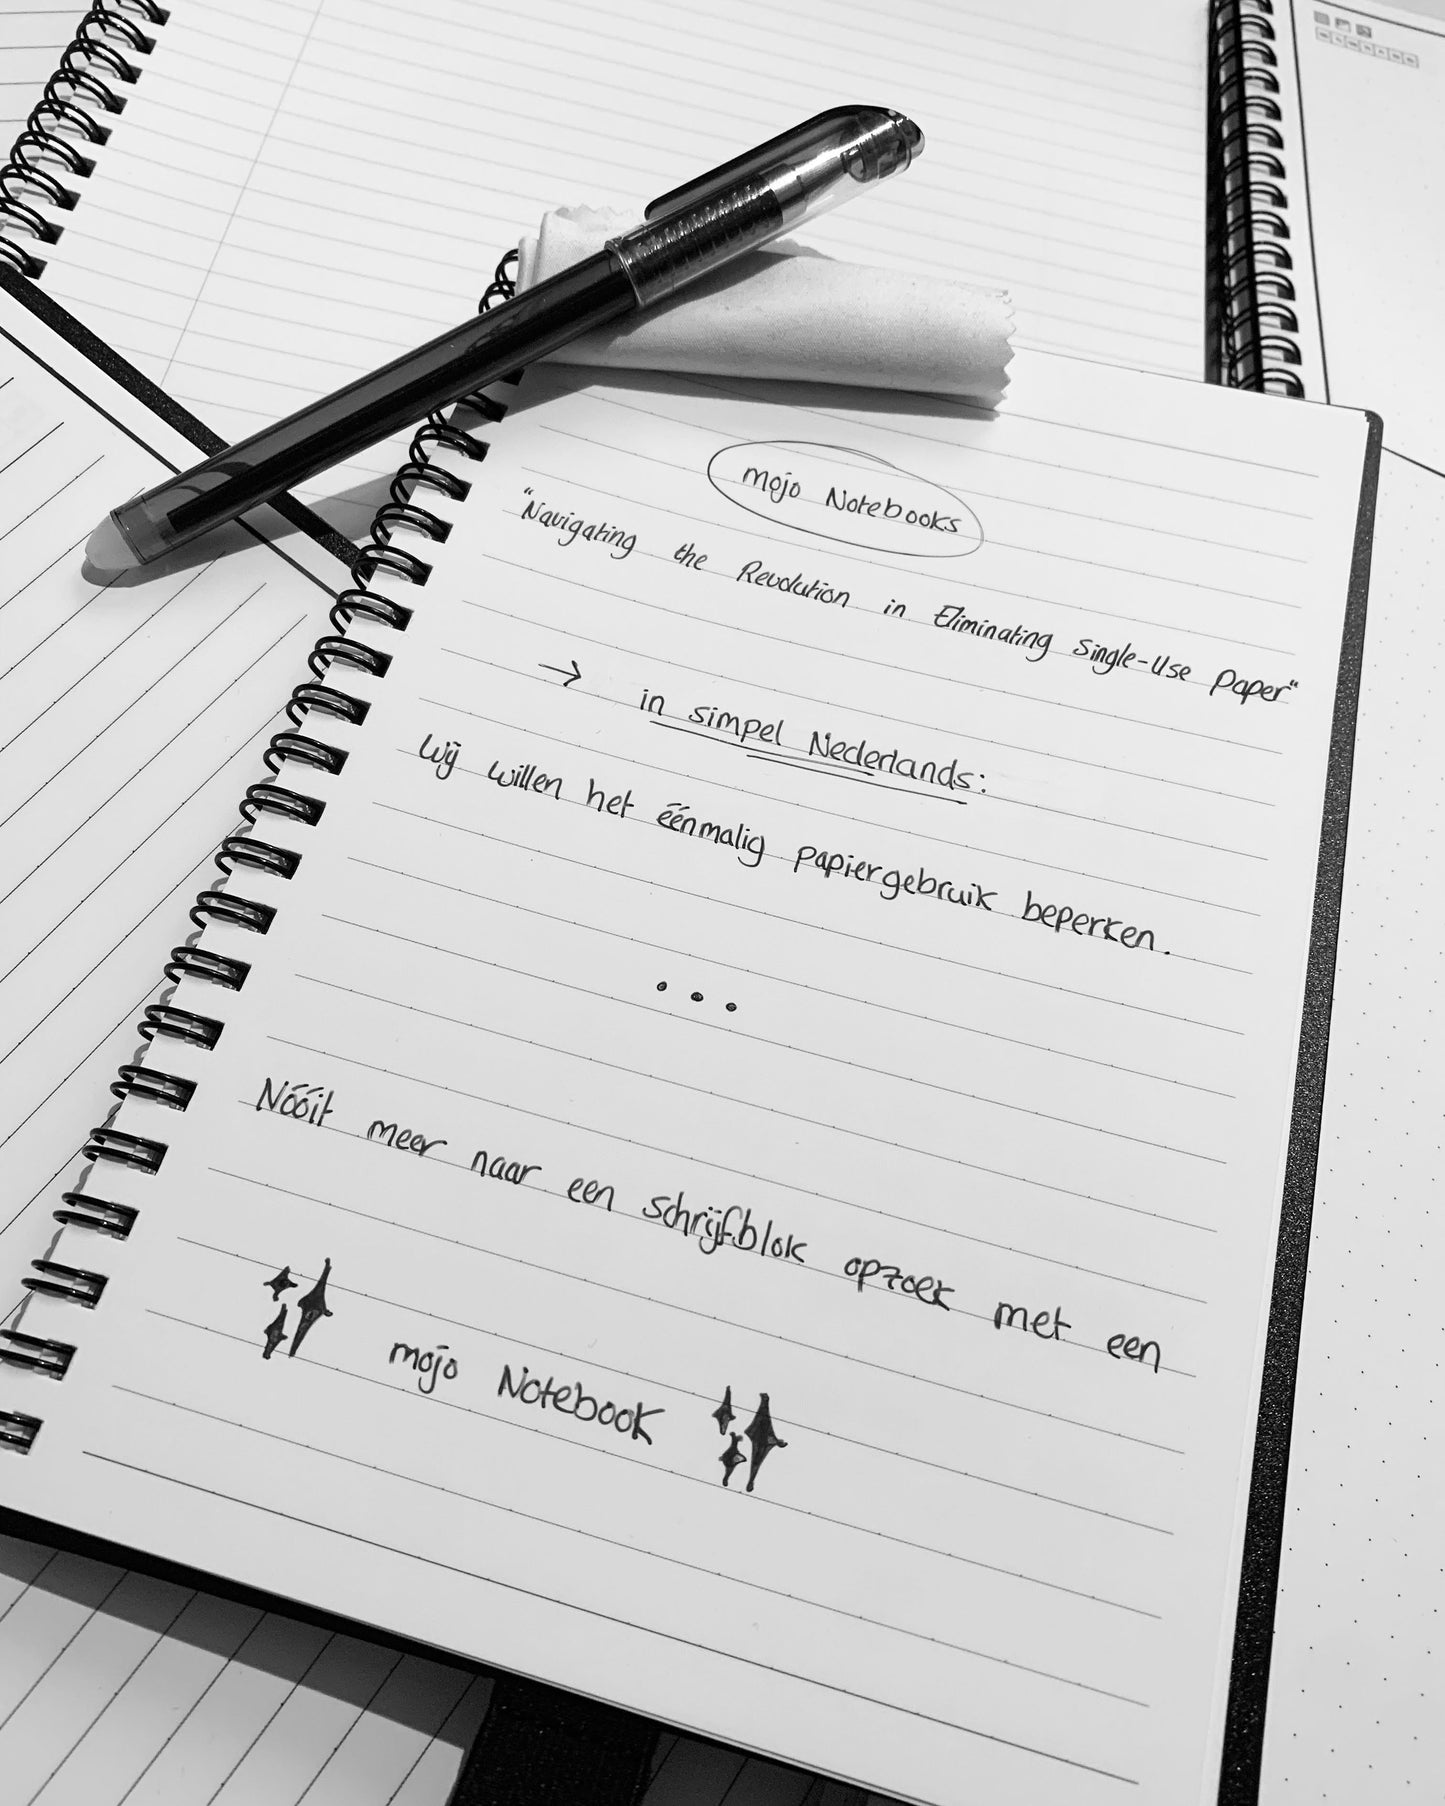 mojo Notebooks
"Navigating the Revolution in Eliminating Single-Use Paper"
→ in simpel Nederlands:
Wij willen het éénmalig papiergebruik beperken.
...
Nóóit meer naar een schrijfblok opzoek met een
mojo Notebook